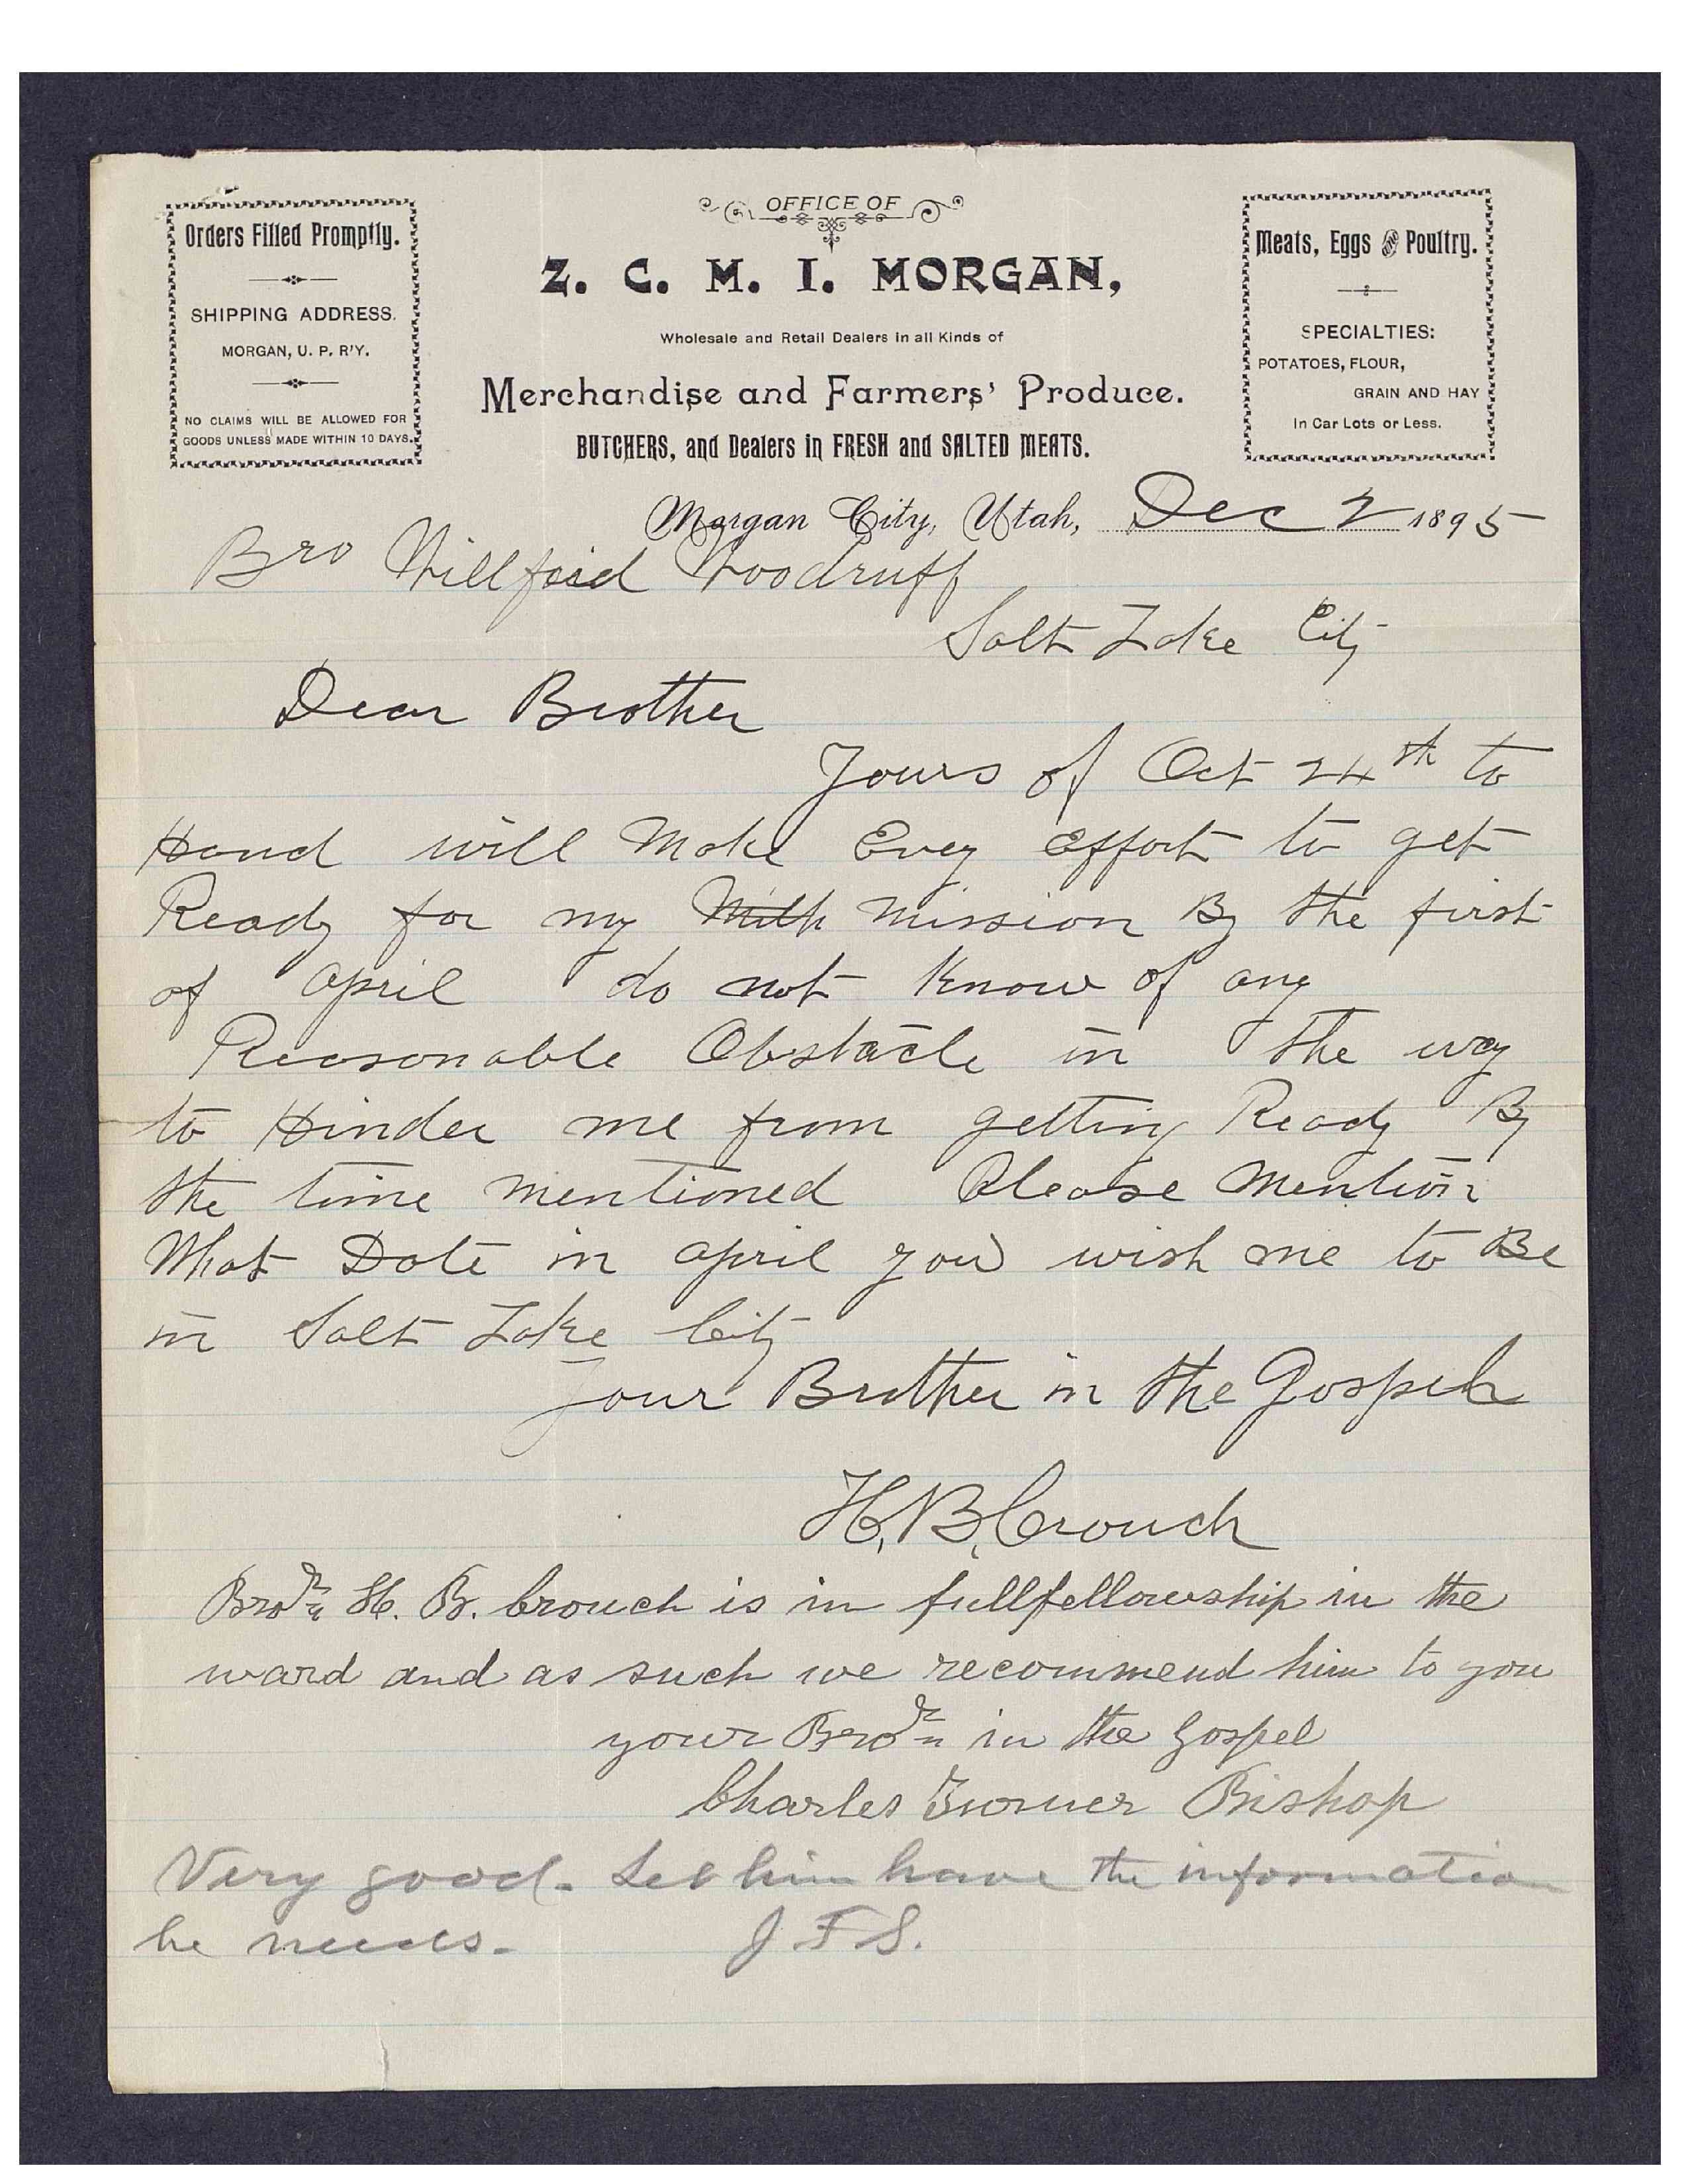 Orders Filled Promptly.
SHIPPING ADDRESS.
MORGAN, U. P. R'Y.
NO CLAIMS WILL BE ALLOWED FOR
GOODS UNLESS MADE WITHIN 10 DAYS.
OFFICE OF
Z. C. M. I. MORGAN,
Wholesale and Retail Dealers in all Kinds of
Merchandise and Farmers' Produce.
BUTCHERS, and Dealers in FRESH and SALTED MEATS.
Meats, Eggs and Poultry.
SPECIALTIES:
POTATOES, FLOUR,
GRAIN AND HAY
In Car Lots or Less.
Morgan City, Utah, Dec 2 1895
Bro Willford Woodruff
Salt Lake City
Dear Brother
Yours of Oct 24th to
Hand will Make Evey Effort to get
Ready for my Mith Mission By the first
of april do not Know of any
Reasonable Obstacle in the way
to Hinder me from getting Ready By
the time mentioned Please Mention
What Date in april you wish me to Be
in Salt Lake City
Your Brother in the Gospel
H. B. Crouch
Bror H. B. Crouch is in fullfellowship in the
ward and as such we recommend him to you
your Bror in the Gospel
Charles Turner Bishop
Very good. Let him have the information
he needs. J F S.